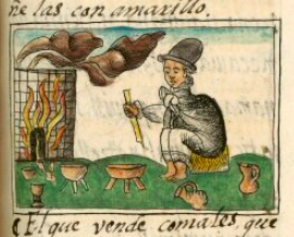 ñe las con amarillo.
El que vende comales, que